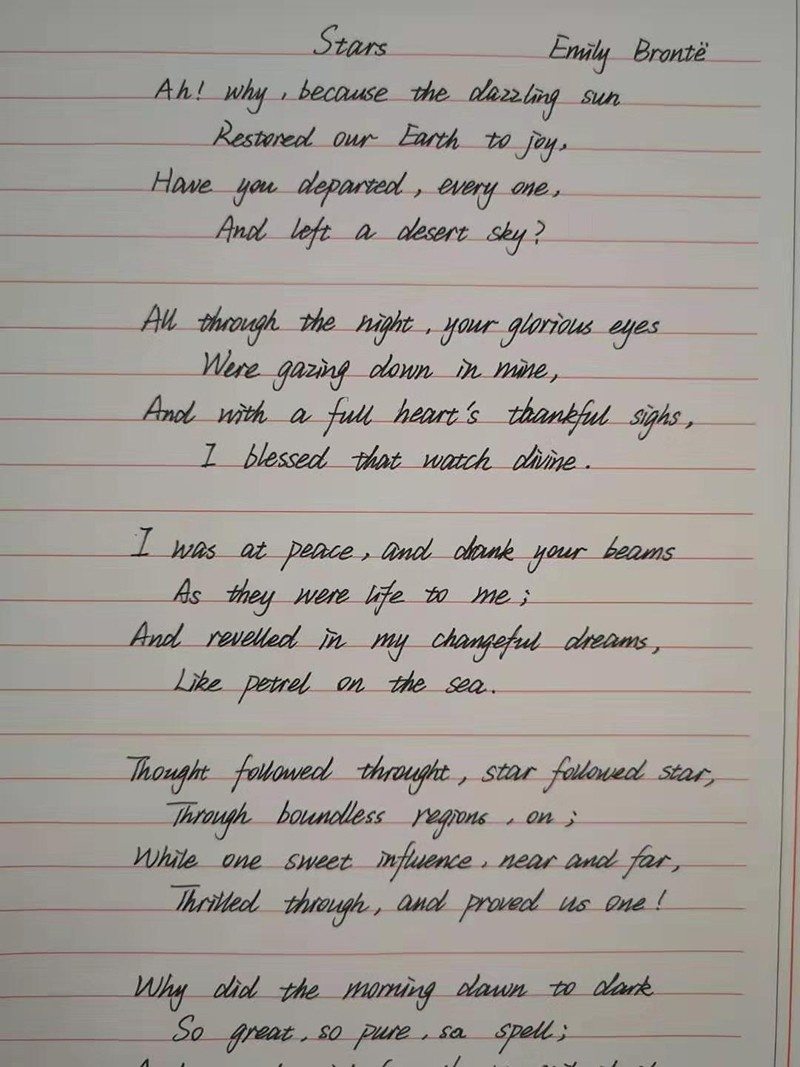 Stars Emily Brontë
Ah! why, because the dazzling sun
Restored our Earth to joy,
Have you departed, every one,
And left a desert sky?
All through the night, your glorious eyes
Were gazing down in mine,
And with a full heart's thankful sighs,
I blessed that watch divine.
I was at peace, and drank your beams
As they were life to me;
And revelled in my changeful dreams,
Like petrel on the sea.
Thought followed throught, star followed star,
Through boundless regions, on;
While one sweet influence, near and far,
Thrilled through, and proved us one!
Why did the morning dawn to dark
So great, so pure, sa spell;